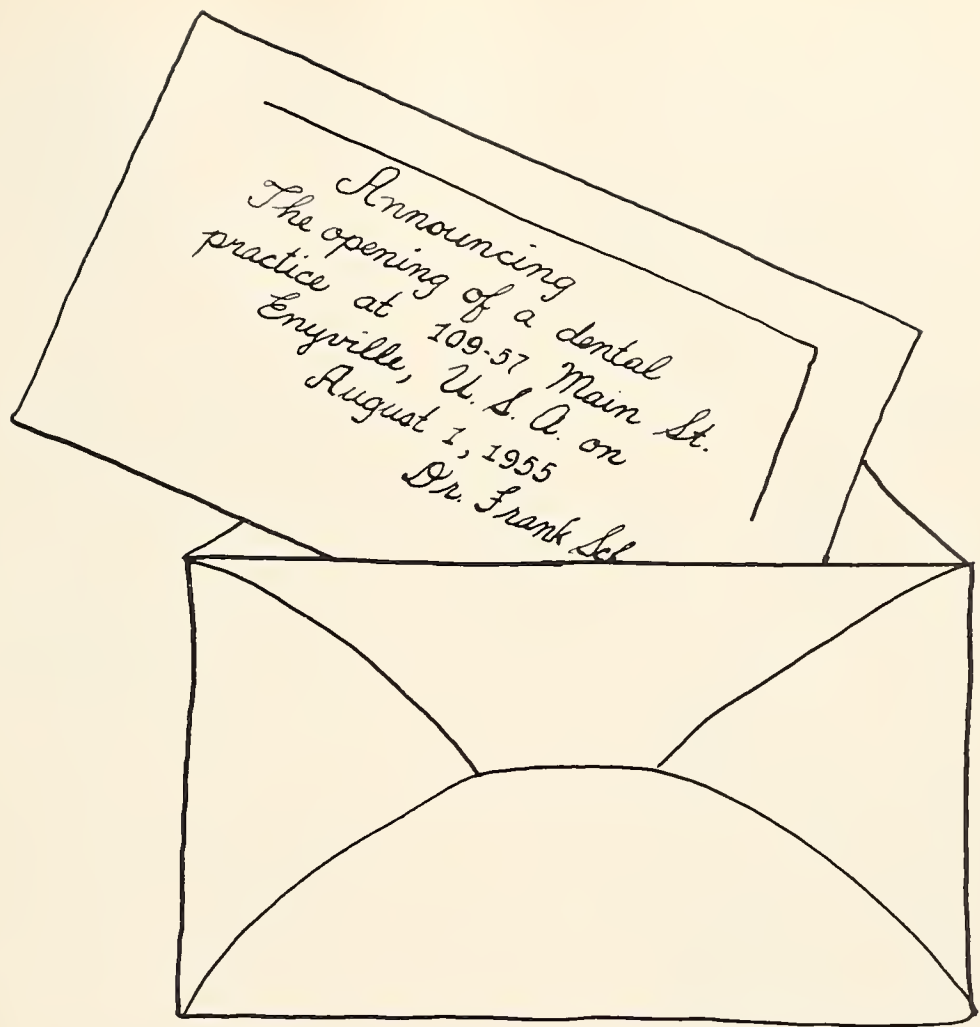 Announcing
The opening of a dental
practice at 109-57 Main St.
Enyville, U. S. A. on
August 1, 1955
Dr. Frank